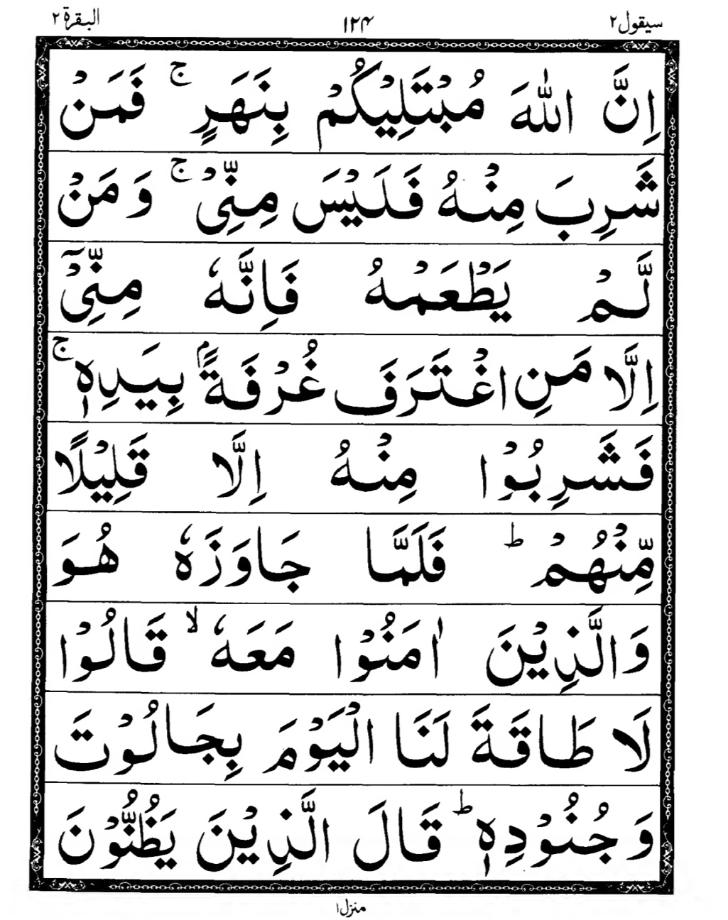 سيقول٢ ١٢۴ البقرة ٢
اِنَّ اللّٰهَ مُبْتَلِيْكُمْ بِنَهَرٍ ۚ فَمَنْ
شَرِبَ مِنْهُ فَلَيْسَ مِنِّىْ ۚ وَ مَنْ
لَّمْ يَطْعَمْهُ فَاِنَّهٗ مِنِّىْۤ
اِلَّا مَنِ اغْتَرَفَ غُرْفَةًۢ بِيَدِهٖ ۚ
فَشَرِبُوْا مِنْهُ اِلَّا قَلِيْلًا
مِّنْهُمْ ؕ فَلَمَّا جَاوَزَهٗ هُوَ
وَالَّذِيْنَ اٰمَنُوْا مَعَهٗ ۙ قَالُوْا
لَا طَاقَةَ لَنَا الْيَوْمَ بِجَالُوْتَ
وَ جُنُوْدِهٖ ؕ قَالَ الَّذِيْنَ يَظُنُّوْنَ
منزل١